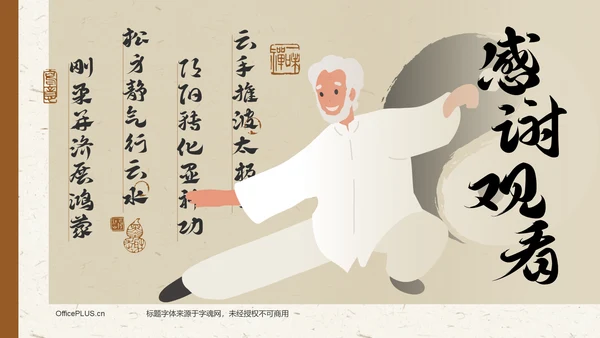 感谢观看
云手推波太极
阴阳转化显神功
松方静气行云水
刚柔并济展鸿蒙
OfficePLUS.cn
标题字体来源于字魂网，未经授权不可商用